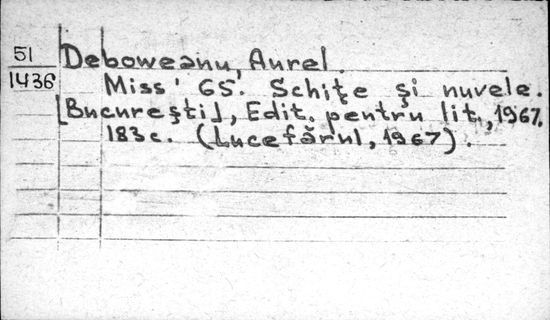 51 Deboweanu, Aurel.
1436 Miss' 65. Schiţe şi nuvele.
[Bucureşti], Edit. pentru lit., 1967.
183 c. (Luceafărul, 1967).